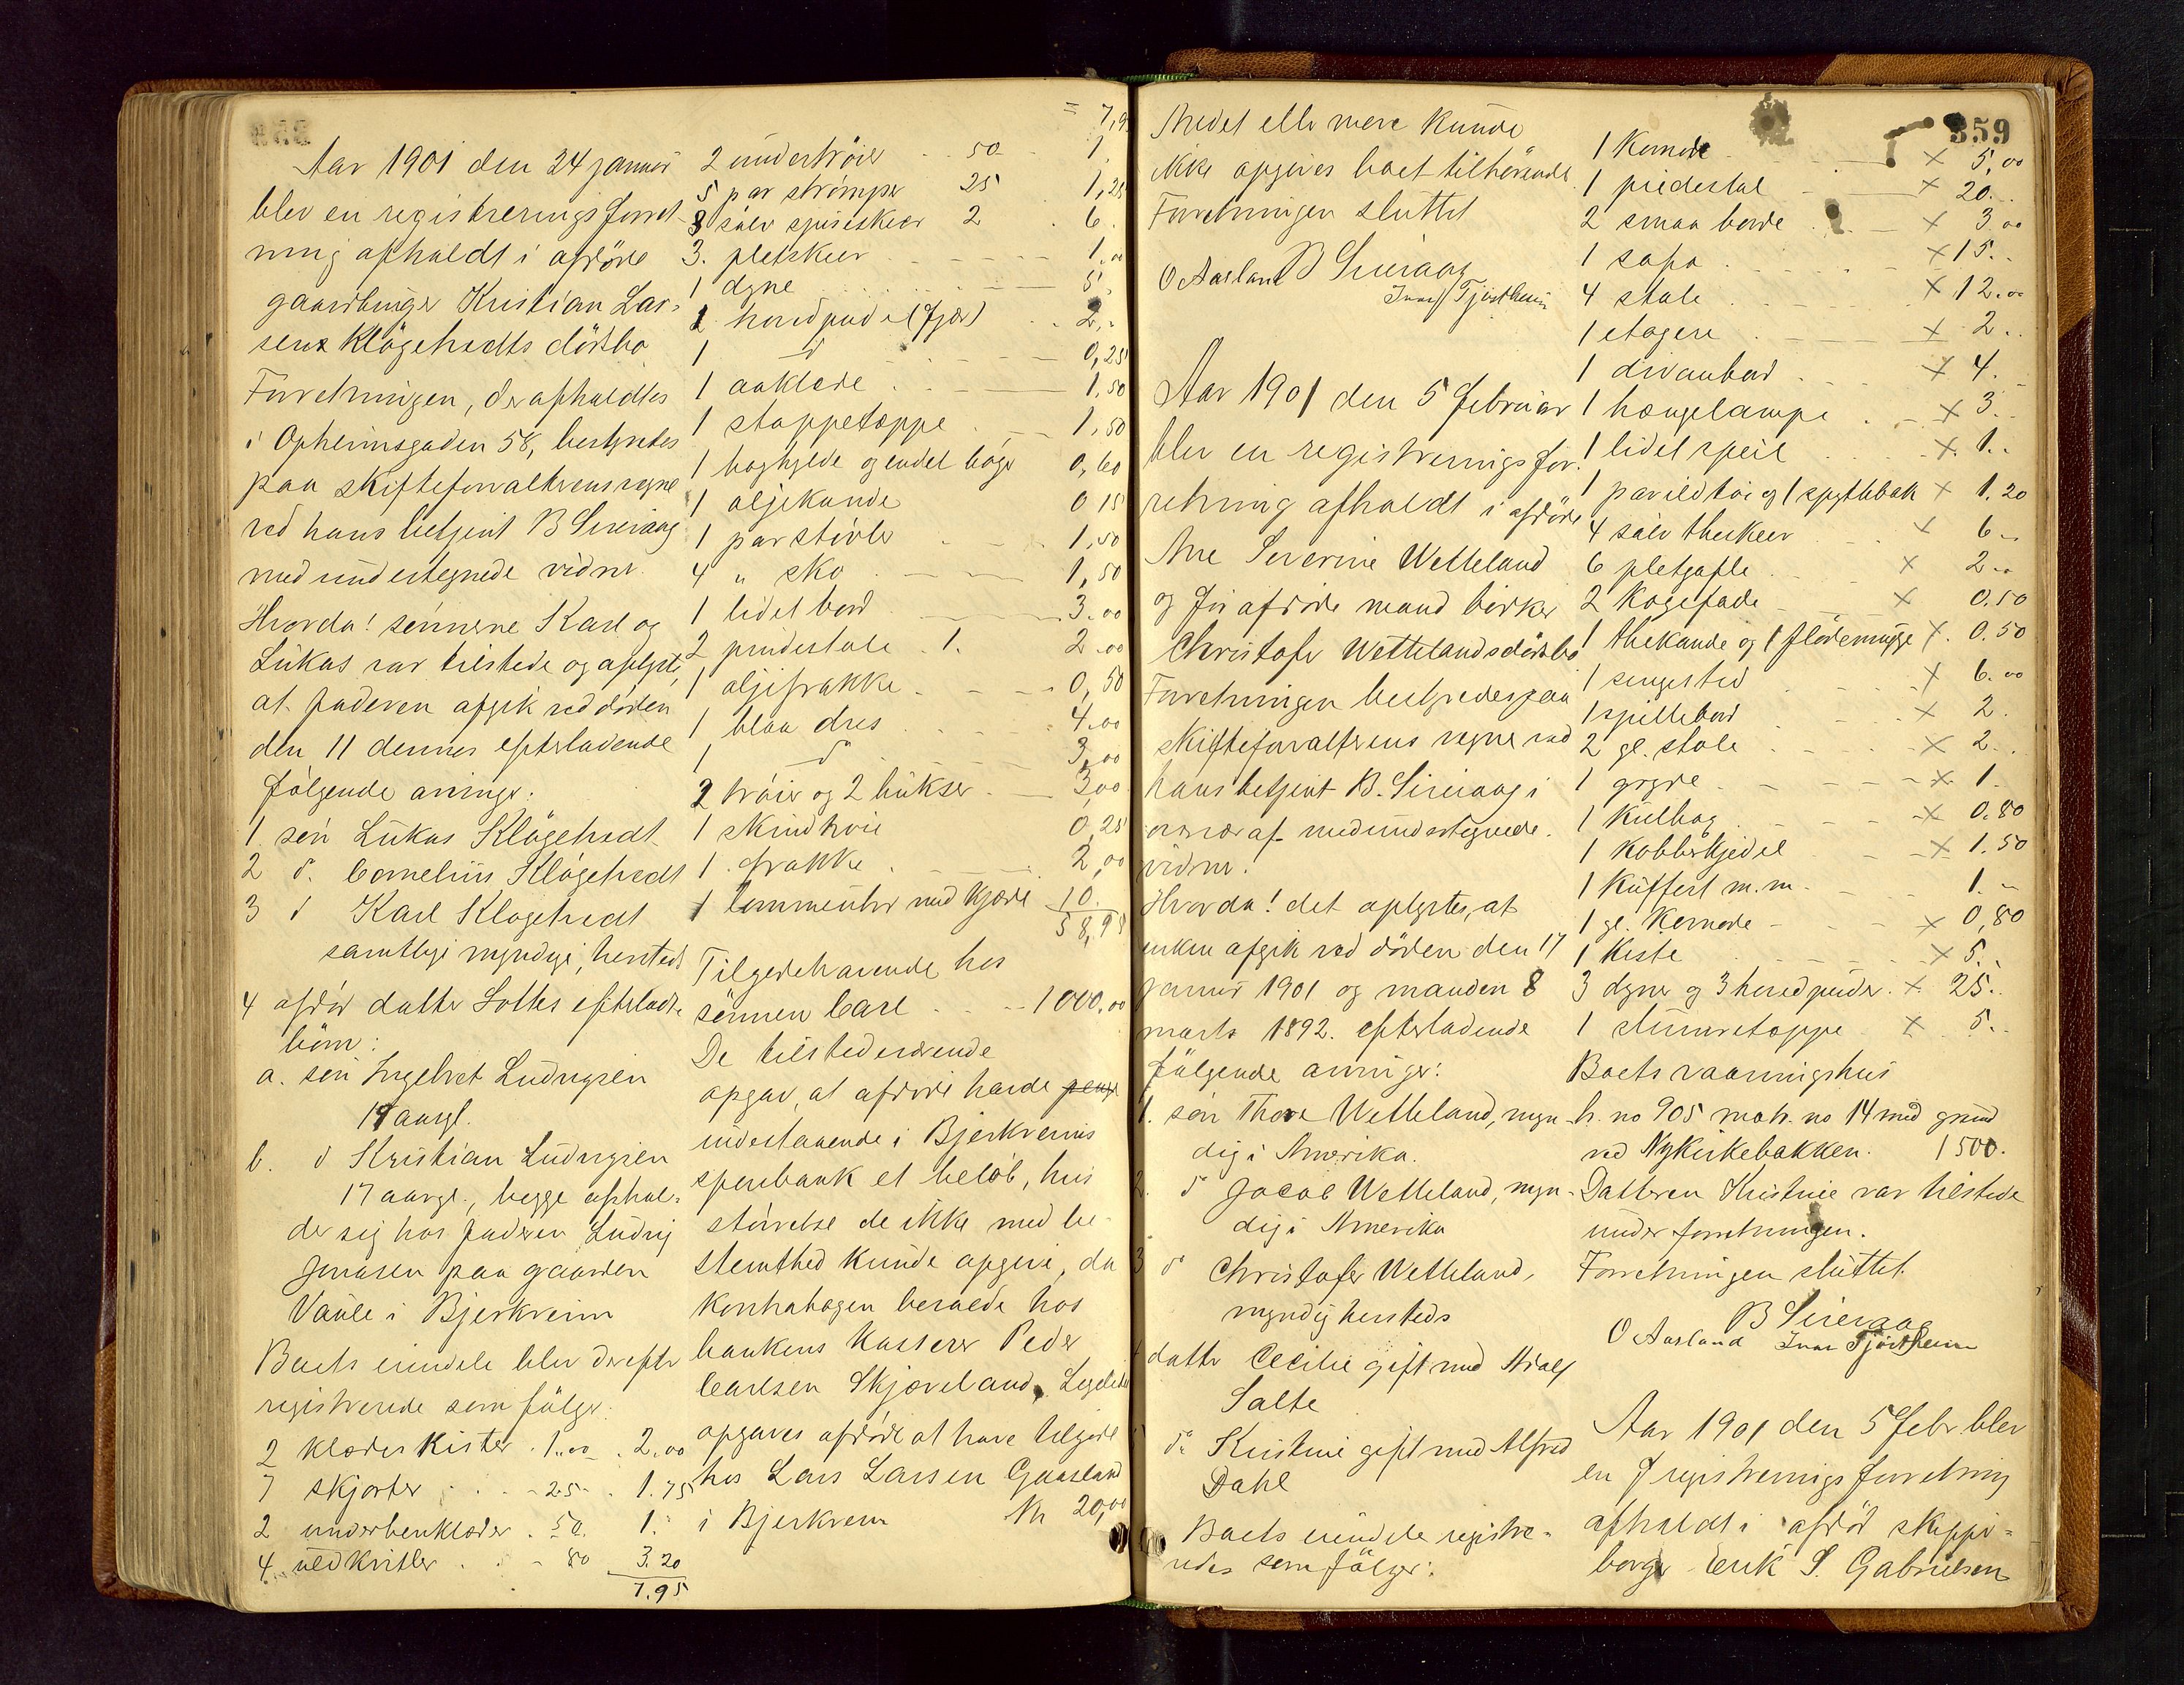 Aar 1901 den 24 januar
blev en registreringsforret-
ning afholdt i afdøde
gaardbruger Kristian Lar-
sens Kløgehedts dødsbo
Forretningen, der afholdtes
i Opheimsgaden 58, bestyredes
paa skifteforvalterens vegne
ved hans betjent B Sirevaag
med undertegnede vidner.
Hvorda! sønnerne Karl og
Lukas var tilstede og oplyste,
at faderen afgik ved døden
den 11 dennes efterladende
følgende arvinger:
1. søn Lukas Kløgehedt
2 d. Cornelius Kløgehedt
3 d Karl Kløgehedt
samtlige myndige, hersteds
4 afdød datter Lottes efterladte
børn:
a. søn Ingebret Ludvigsen
19 aargl.
b. d Kristian Ludvigsen
17 aargl., begge ophol-
der sig hos faderen Ludvig
Jonasen paa gaarden
Vaule i Bjerkreim
Boets eiendele blev derefter
registrerede som følger:
2 klædeskister . 1.00 . 2.00
7 skjorter . . - 25 - . 1.75
2 underbenklæder . 50. 1. -
4 uldkvitler . . - 80 3.20
7.95
= 7,95
2 undertrøier - - 50 - 1
5 par strømper 25 1,25
3 sølv spiseskeer 2 . 6.
3. pletskeer - - - - 1.00
1 dyne - - - - 5.
1 hovedpude (fjær) . . 2. -
1 d - - - - 0,25
1 aaklæde . . - - 1,50
1 stoppetæppe . - - 1,50
1 boghylde og endel bøger 0,60
1 oljekande 0 15
1 par støvler - - - 1,50
4 " sko . - - - 1,50
1 lidet bord - - - 3.00
2 pindestole . 1. 2.00
1 oljefrakke . - - - 0,50
1 blaa dres . . . . 4.00
1 d - - - 3,00
2 trøier og 2 bukser . - 3,00
1 skindtrøie 0,25
1 . frakke . . 2,00
1 lommeuhr med kjæde 10.
58,95
Tilgodehavende hos
sønnen Carl . . - - 1000.00
De tilstedeværende
opgav, at afdøde havde penge
indestaaende i Bjerkreims
sparebank et beløb, hvis
størrelse de ikke med be-
stemthed kunde opgive, da
kontrabogen beroede hos
bankens kasserer Peder
Carlsen Skjæveland.
opgaves afdøde at have tilgode
hos Lars Larsen Gaasland
i Bjerkrem Kr 20,00
359
Andet eller mere kunde
ikke opgives boet tilhørende.
Forretningen sluttet
B Sirevaag
O Aarsland Ivar Tjøstheim
Aar 1901 den 5 februar
blev en registreringsfor-
retning afholdt i afdøde
Ane Severine Wetteland
og før afdøde mand bødker
Christofer Wettelands dødsbo
Forretningen bestyredes paa
skifteforvalterens vegne ved
hans betjent B. Sirevaag i
overvær af medundertegnede
vidner.
Hvorda! det oplystes, at
enken afgik ved døden den 17
januar 1901 og manden 8
marts 1892. efterladende
følgende arvinger:
1. søn Thore Wetteland, myn-
dig i Amerika.
2. d Jacob Wetteland, myn-
dig i Amerika
3 d Christofer Wetteland,
myndig hersteds
4 datter Cecilie gift med
Salte
d. Kristine gift med Alfred
Dahl
Boets eiendele registre-
redes som følger:
1 komode . . . × 5,00
1 piedestal - - × 20. -
2 smaa borde . - × 3.00
1 sofa . . . . × 15. -
4 stole . . - - × 12.00
1 etagere . - - - × 2 . .
1 divanbord . - - × 4. -
1 hængelampe . - × 3. -
1 lidet speil . . . × 1. -
1 par ildtøi og 1 spyttebak × 1.20
4 sølv theskeer . - × 6 -
6 pletgafle . . × 2 -
2 kagefade - - × 0.50
1 thekande og 1 flødemugge × . 0.50
1 sengested . . × 6.00
1 spillebord . . × 2.
2 gl. stole . - - × 2. .
1 gryde - - - × 1.
1 kulbog . - - × 0.80
1 kobberkjedel - × 1.50
1 kuffert m.m. - 1. -
1 gl. komode - - × 0,80
1 kiste . - - × 5. -
3 dyner og 3 hovedpuder . × 25. -
1 stuuretæppe × 5. -
Boets vaaningshus
h. no 905 matr. no 14 med grund
ved Nykirkebakken. 1500.
Datteren Kristine var tilstede
under forretningen.
Forretningen sluttet.
B Sirevaag
O Aarsland Ivar Tjøstheim
Aar 1901 den 5 febr blev
en registreringsforretning
afholdt i afdød skipper-
borger Erik S. Gabrielsen